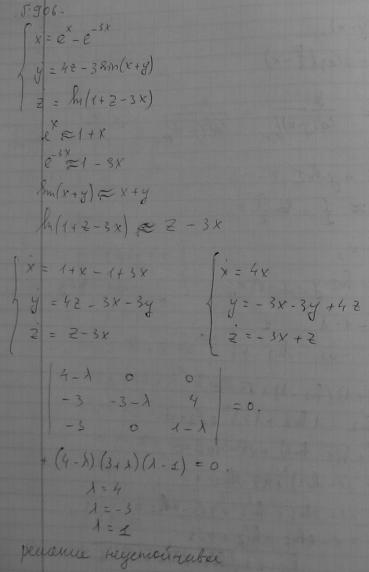 Г.906.
ẋ = e^x - e^{-3x}
ẏ = 4z - 3sin(x+y)
ż = ln(1+z-3x)
e^x ≈ 1+x
e^{-3x} ≈ 1 - 3x
sin(x+y) ≈ x+y
ln(1+z-3x) ≈ z - 3x
ẋ = 1+x-1+3x ẋ = 4x
ẏ = 4z - 3x - 3y ẏ = -3x - 3y + 4z
ż = z-3x ż = -3x + z
| 4-λ 0 0 |
| -3 -3-λ 4 | = 0.
| -3 0 1-λ |
+ (4-λ)(3+λ)(λ-1) = 0.
λ = 4
λ = -3
λ = 1
решение неустойчивое